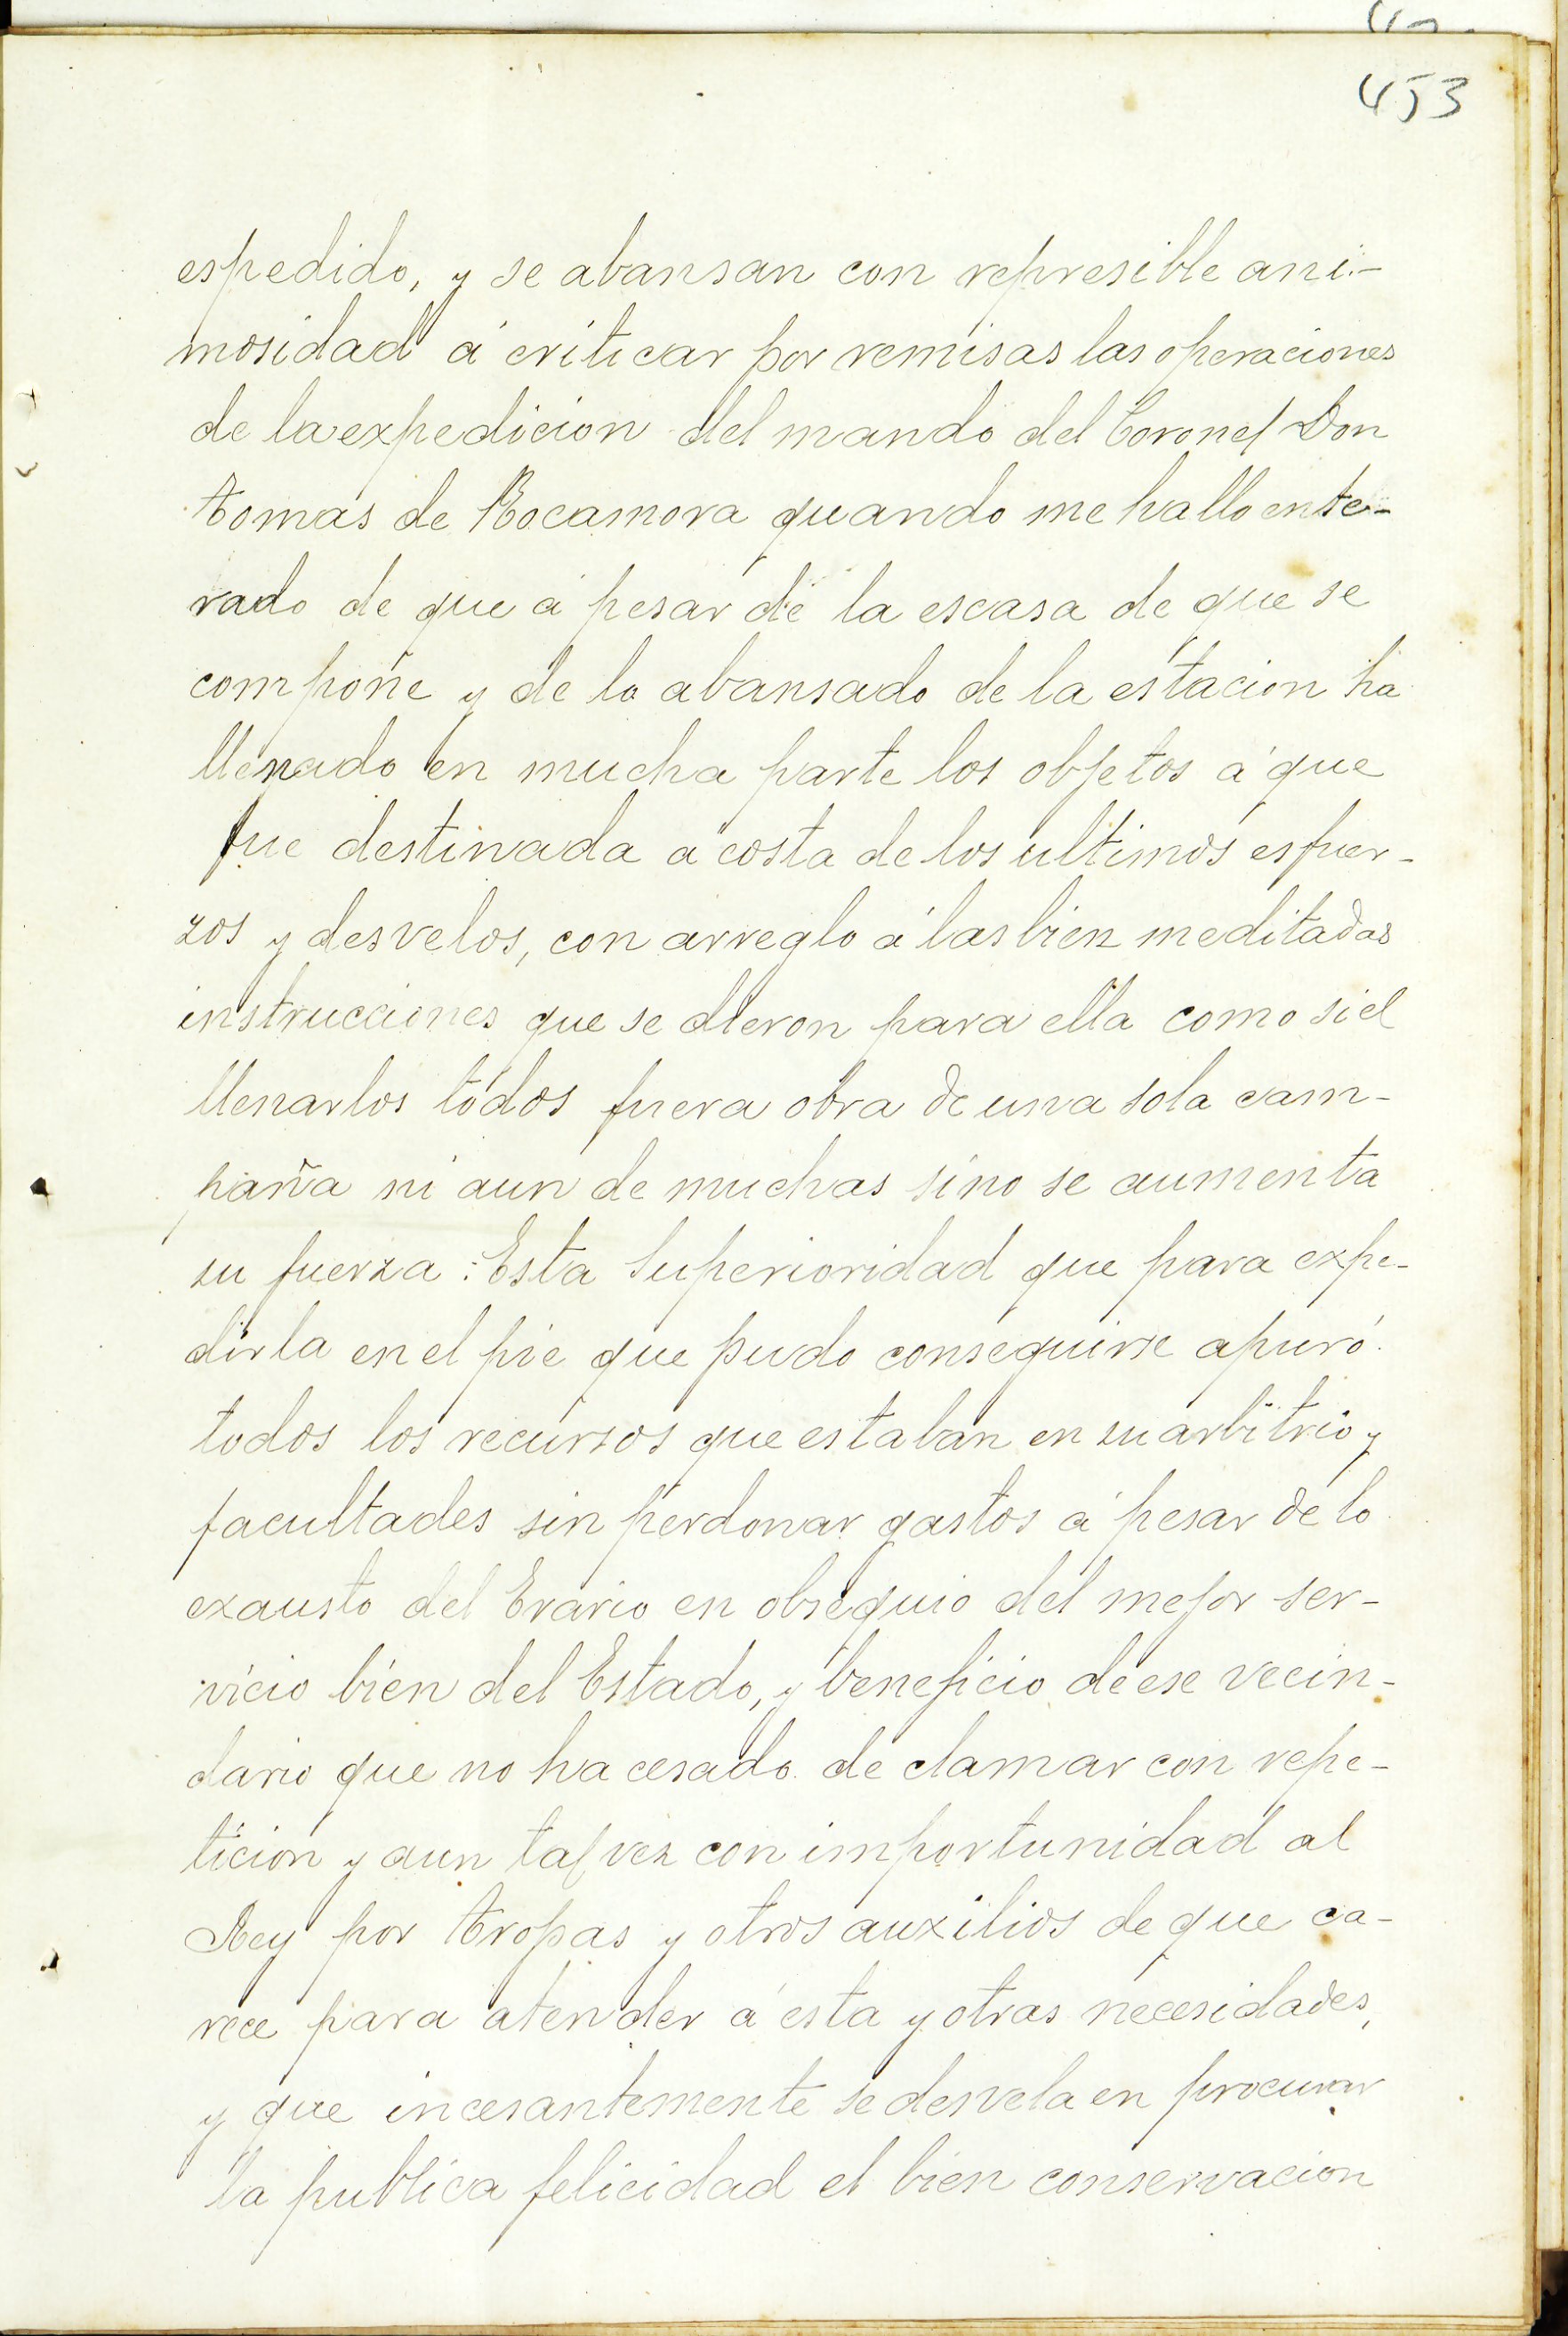 453
espedido, y se abansan con represible ani-
mosidad á criticar por remisas las operaciones
de la expedicion del mando del Coronel Don
Tomas de Rocamora quando me hallo ente-
rado de que á pesar de la escasa de que se
compone y de lo abansado de la estacion ha
llenado en mucha parte los objetos á que
fue destinada á costa de los ultimos esfuer-
zos y desvelos, con arreglo á las bien meditadas
instrucciones que se dieron para ella como si el
llenarlos todos fuera obra de una sola cam-
paña ni aun de muchas sino se aumenta
su fuerza: Esta Superioridad que para expe-
dirla en el pie que pudo conseguirse apuró
todos los recursos que estaban en su arbitrio y
facultades sin perdonar gastos á pesar de lo
exausto del Erario en obsequio del mejor ser-
vicio bien del Estado, y beneficio de ese vecin-
dario que no ha cesado de clamar con repe-
ticion y aun tal vez con importunidad al
Rey por tropas y otros auxilios de que ca-
rece para atender á esta y otras necesidades,
y que incesantemente se desvela en procurar
la publica felicidad el bien conservacion